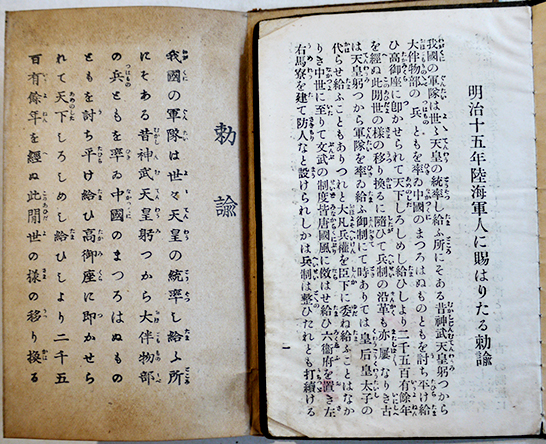 明治十五年陸海軍人に賜はりたる勅諭
我國の軍隊は世々天皇の統率し給ふ所にそある昔神武天皇躬つから
大伴物部の兵ともを率ゐ中國のまつろはぬものともを討ち平け給
ひ高御座に卽かせられて天下しろしめし給ひしより二千五百有餘年
を經ぬ此間世の樣の移り換るに隨ひて兵制の沿革も亦屢なりき古
は天皇躬つから軍隊を率ゐ給ふ御制にて時ありては皇后皇太子の
代らせ給ふこともありつれと大凡兵權を臣下に委ね給ふことはなか
りき中世に至りて文武の制度皆唐國風に傚はせ給ひ六衞府を置き左
右馬寮を建て防人なと設けられしかは兵制は整ひたれとも打續ける
一
勅諭
我國の軍隊は世々天皇の統率し給ふ所
にそある昔神武天皇躬つから大伴物部
の兵ともを率ゐ中國のまつろはぬもの
ともを討ち平け給ひ高御座に卽かせら
れて天下しろしめし給ひしより二千五
百有餘年を經ぬ此間世の樣の移り換る